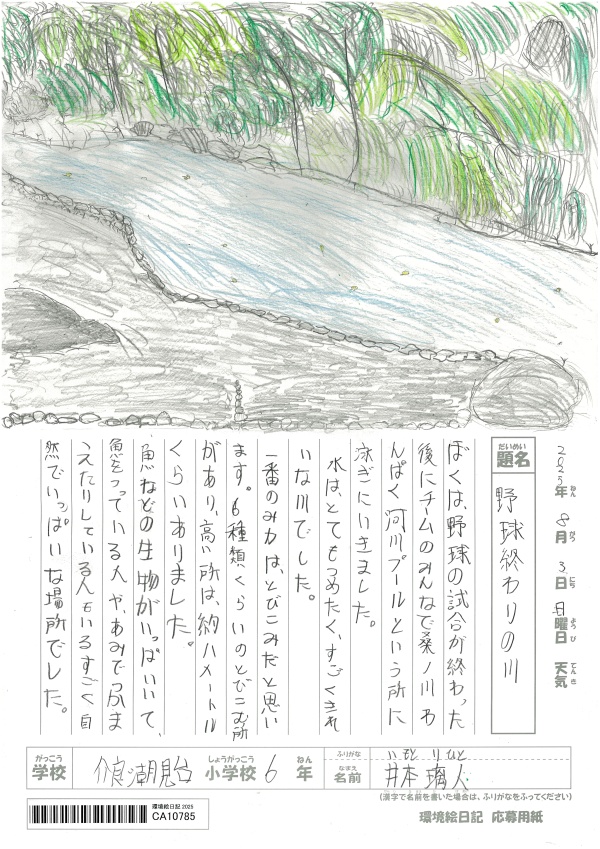 2025年ねん 8月がつ 3日にち 日曜日ようび 天気てんき
だいめい
題名
野球終わりの川
ぼくは、野球の試合が終わった
後にチームのみんなで桑ノ川わ
んぱく河川プールという所に
泳ぎにいきました。
水は、とてもつめたく、すごくきれ
いな川でした。
一番のみ力は、とびこみだと思い
ます。6種類くらいのとびこむ所
があり、高い所は、約ハメートル
くらいありました。
魚などの生物がいっぱいいて、
魚をつっている人や、あみでつかま
えたりしている人もいるすごく自
然でいっぱいな場所でした。
がっこう
学校
介良潮見台
しょうがっこう
小学校
6
ねん
年
ふりがな
いもと りひと
なまえ
名前
井本 璃人
(漢字で名前を書いた場合は、ふりがなをふってください)
環境絵日記 2025
CA10785
環境絵日記 応募用紙